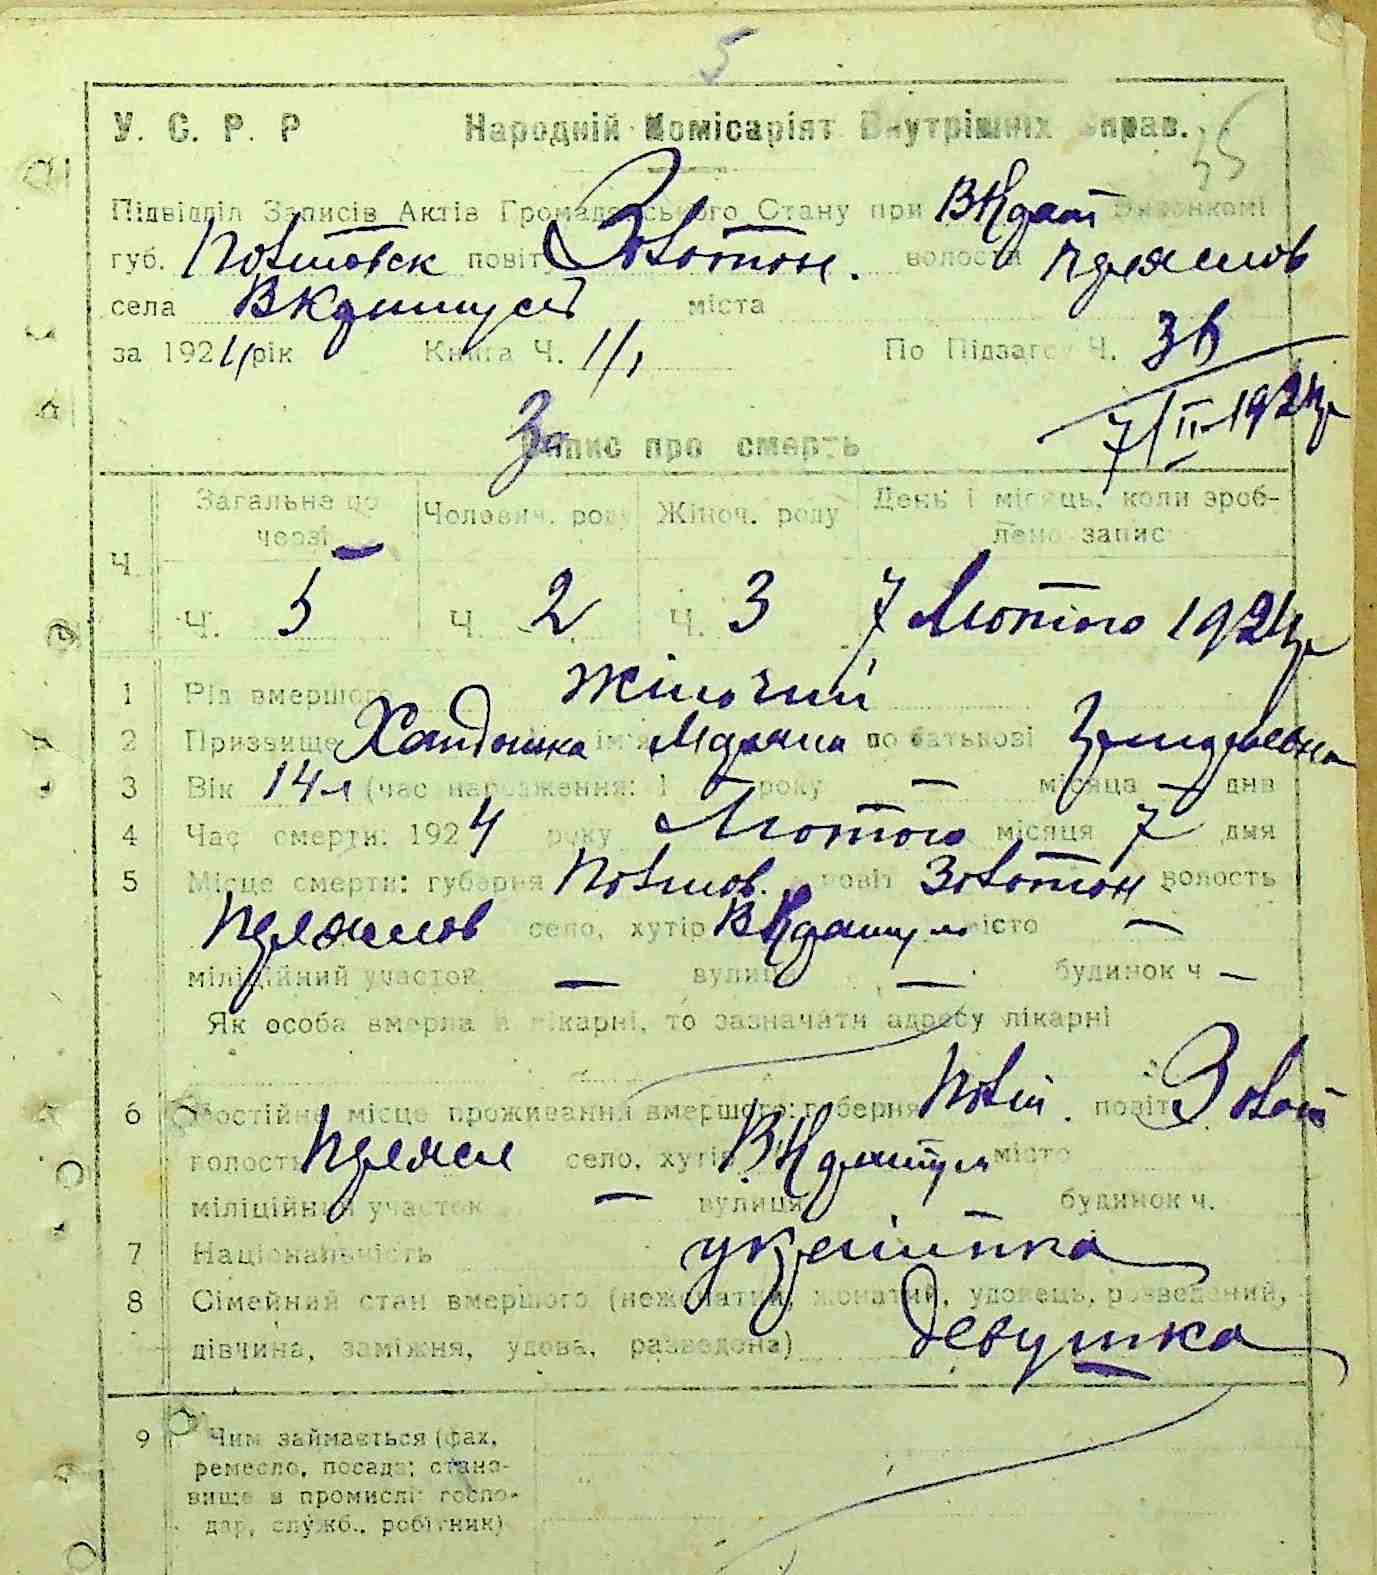 5
У. С. Р. Р Народній Комісаріят Внутрішніх Справ.
35
Підвідділ Записів Актів Громадянського Стану при Виконкомі
губ. Полтовск повіт Золотон. волости
села міста
за 1924 рік Книга Ч. По Підзагсу Ч.
7/II-1924р
Запис про смерть
Ч Загальне по черзі Чоловіч. роду Жіноч. роду День і місяць, коли зроб-
лено запис
Ч. 5 Ч. 2 Ч. 3 7 Лютого 1924р
1 Рід вмершого жіночий
2 Призвище Хандошка ім'я по батькові
3 Вік 14 л (час народження: 1 року — місяца — дня
4 Час смерти: 1924 року Лютого місяця 7 дня
5 Місце смерти: губерня Полтов. повіт Золотон волость
село, хутір місто —
міліційний участок — вулиця — будинок ч —
Як особа вмерла в лікарні, то зазначати адресу лікарні
6 Постійне місце проживання вмершого: губерня Полт. повіт Золот
волость село, хутір місто
міліційний участок — вулиця будинок ч.
7 Національність українка
8 Сімейний стан вмершого (нежонатий, жонатий, удовець, розведений,
дівчина, заміжня, удова, разведена) девушка
9 Чим займається (фах,
ремесло, посада; стано-
вище в промислі: госпо-
дар, служб., робітник)